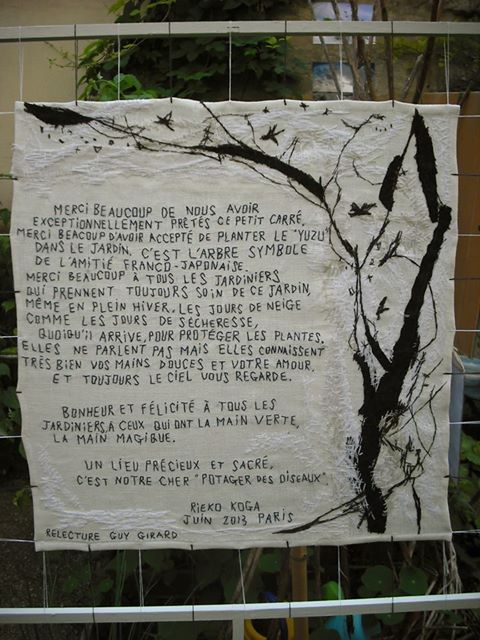 MERCI BEAUCOUP DE NOUS AVOIR
EXCEPTIONNELLEMENT PRÊTÉS CE PETIT CARRÉ,
MERCI BEACOUP D'AVOIR ACCEPTÉ DE PLANTER LE "YUZU"
DANS LE JARDIN, C'EST L'ARBRE SYMBOLE
DE L'AMITIÉ FRANCO-JAPONAISE.
MERCI BEAUCOUP À TOUS LES JARDINIERS
QUI PRENNENT TOUJOURS SOIN DE CE JARDIN,
MÊME EN PLEIN HIVER, LES JOURS DE NEIGE
COMME LES JOURS DE SÉCHERESSE,
QUOIQU'IL ARRIVE, POUR PROTÉGER LES PLANTES.
ELLES NE PARLENT PAS MAIS ELLES CONNAISSENT
TRÈS BIEN VOS MAINS DOUCES ET VOTRE AMOUR,
ET TOUJOURS LE CIEL VOUS REGARDE.
BONHEUR ET FÉLICITÉ À TOUS LES
JARDINIERS, A CEUX QUI ONT LA MAIN VERTE,
LA MAIN MAGIQUE.
UN LIEU PRÉCIEUX ET SACRÉ,
C'EST NOTRE CHER "POTAGER DES OISEAUX"
RIEKO KOGA
JUIN 2013 PARIS
RELECTURE GUY GIRARD